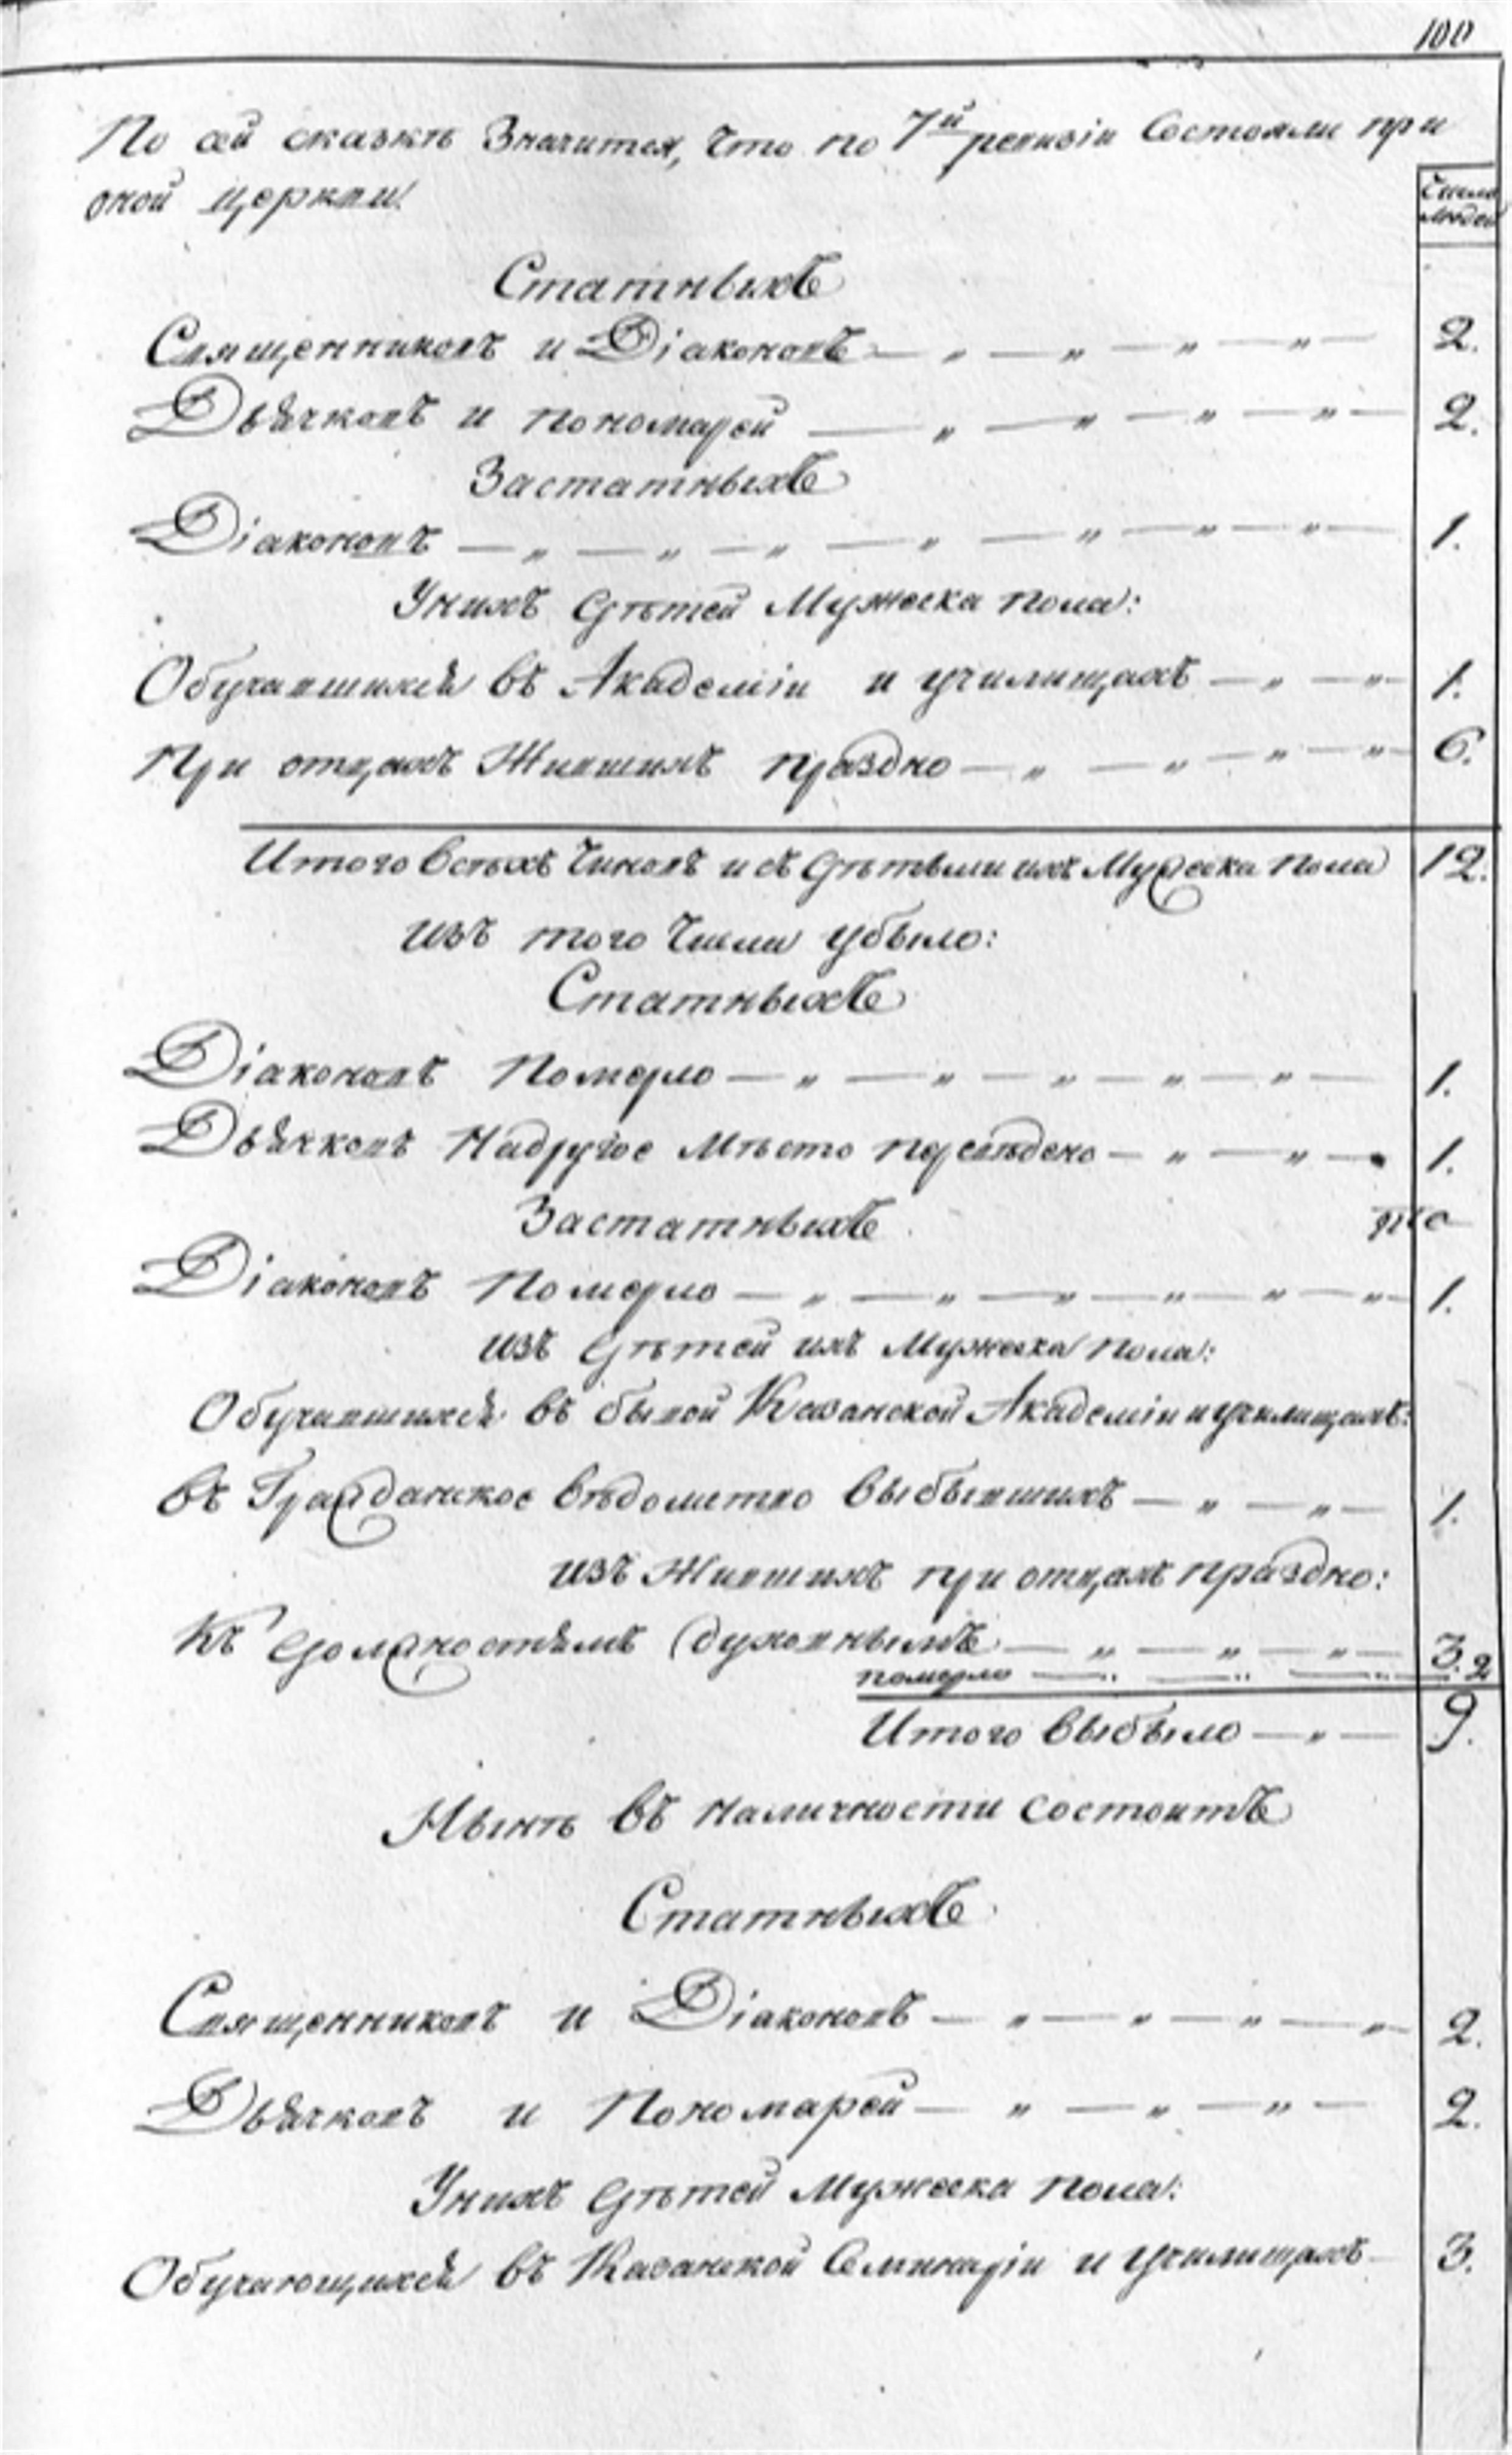 100
По сей сказкѣ Значится, Что по 7й ревизіи Состояли при
оной церкви!
Число людей
Статныхъ
Священниковъ и Діаконовъ — „ — „ — „ — „ — 2.
Дьячковъ и пономарей — „ — „ — „ — „ — 2.
Застатныхъ
Діаконовъ — „ — „ — „ — „ — „ — „ — „ — 1.
Унихъ Дѣтей Мужеска пола:
Обучавшихся въ Академіи и училищахъ — „ — „ — 1.
При отцахъ Жившихъ праздно — „ — „ — „ — „ — 6.
Итого Всѣхъ Чиновъ и съ Дѣтьми ихъ Мужеска пола 12.
изъ того Числа убыло:
Статныхъ
Діаконовъ Померло — „ — „ — „ — „ — „ — 1.
Дьячковъ Надругое Мѣсто переведено — „ — „ — 1.
Застатныхъ
Діаконовъ Померло — „ — „ — „ — „ — „ — „ — 1.
изъ Дѣтей ихъ Мужеска пола:
Обучавшихся въ бывой Казанской Академіи и училищахъ:
въ Гражданское вѣдомство Выбывшихъ — „ — „ — 1.
изъ Жившихъ при отцахъ праздно:
Къ Должностямъ духовнымъ — „ — „ — „ — 3.
померло — „ — „ — „ — 2
Итого Выбыло — „ — 9.
Нынѣ въ наличности состоитъ
Статныхъ
Священниковъ и Діаконовъ — „ — „ — „ — „ 2.
Дьячковъ и Пономарей — „ — „ — „ — 2.
Унихъ Дѣтей Мужеска пола:
Обучающихся въ Казанской Семинаріи и Училищахъ 3.